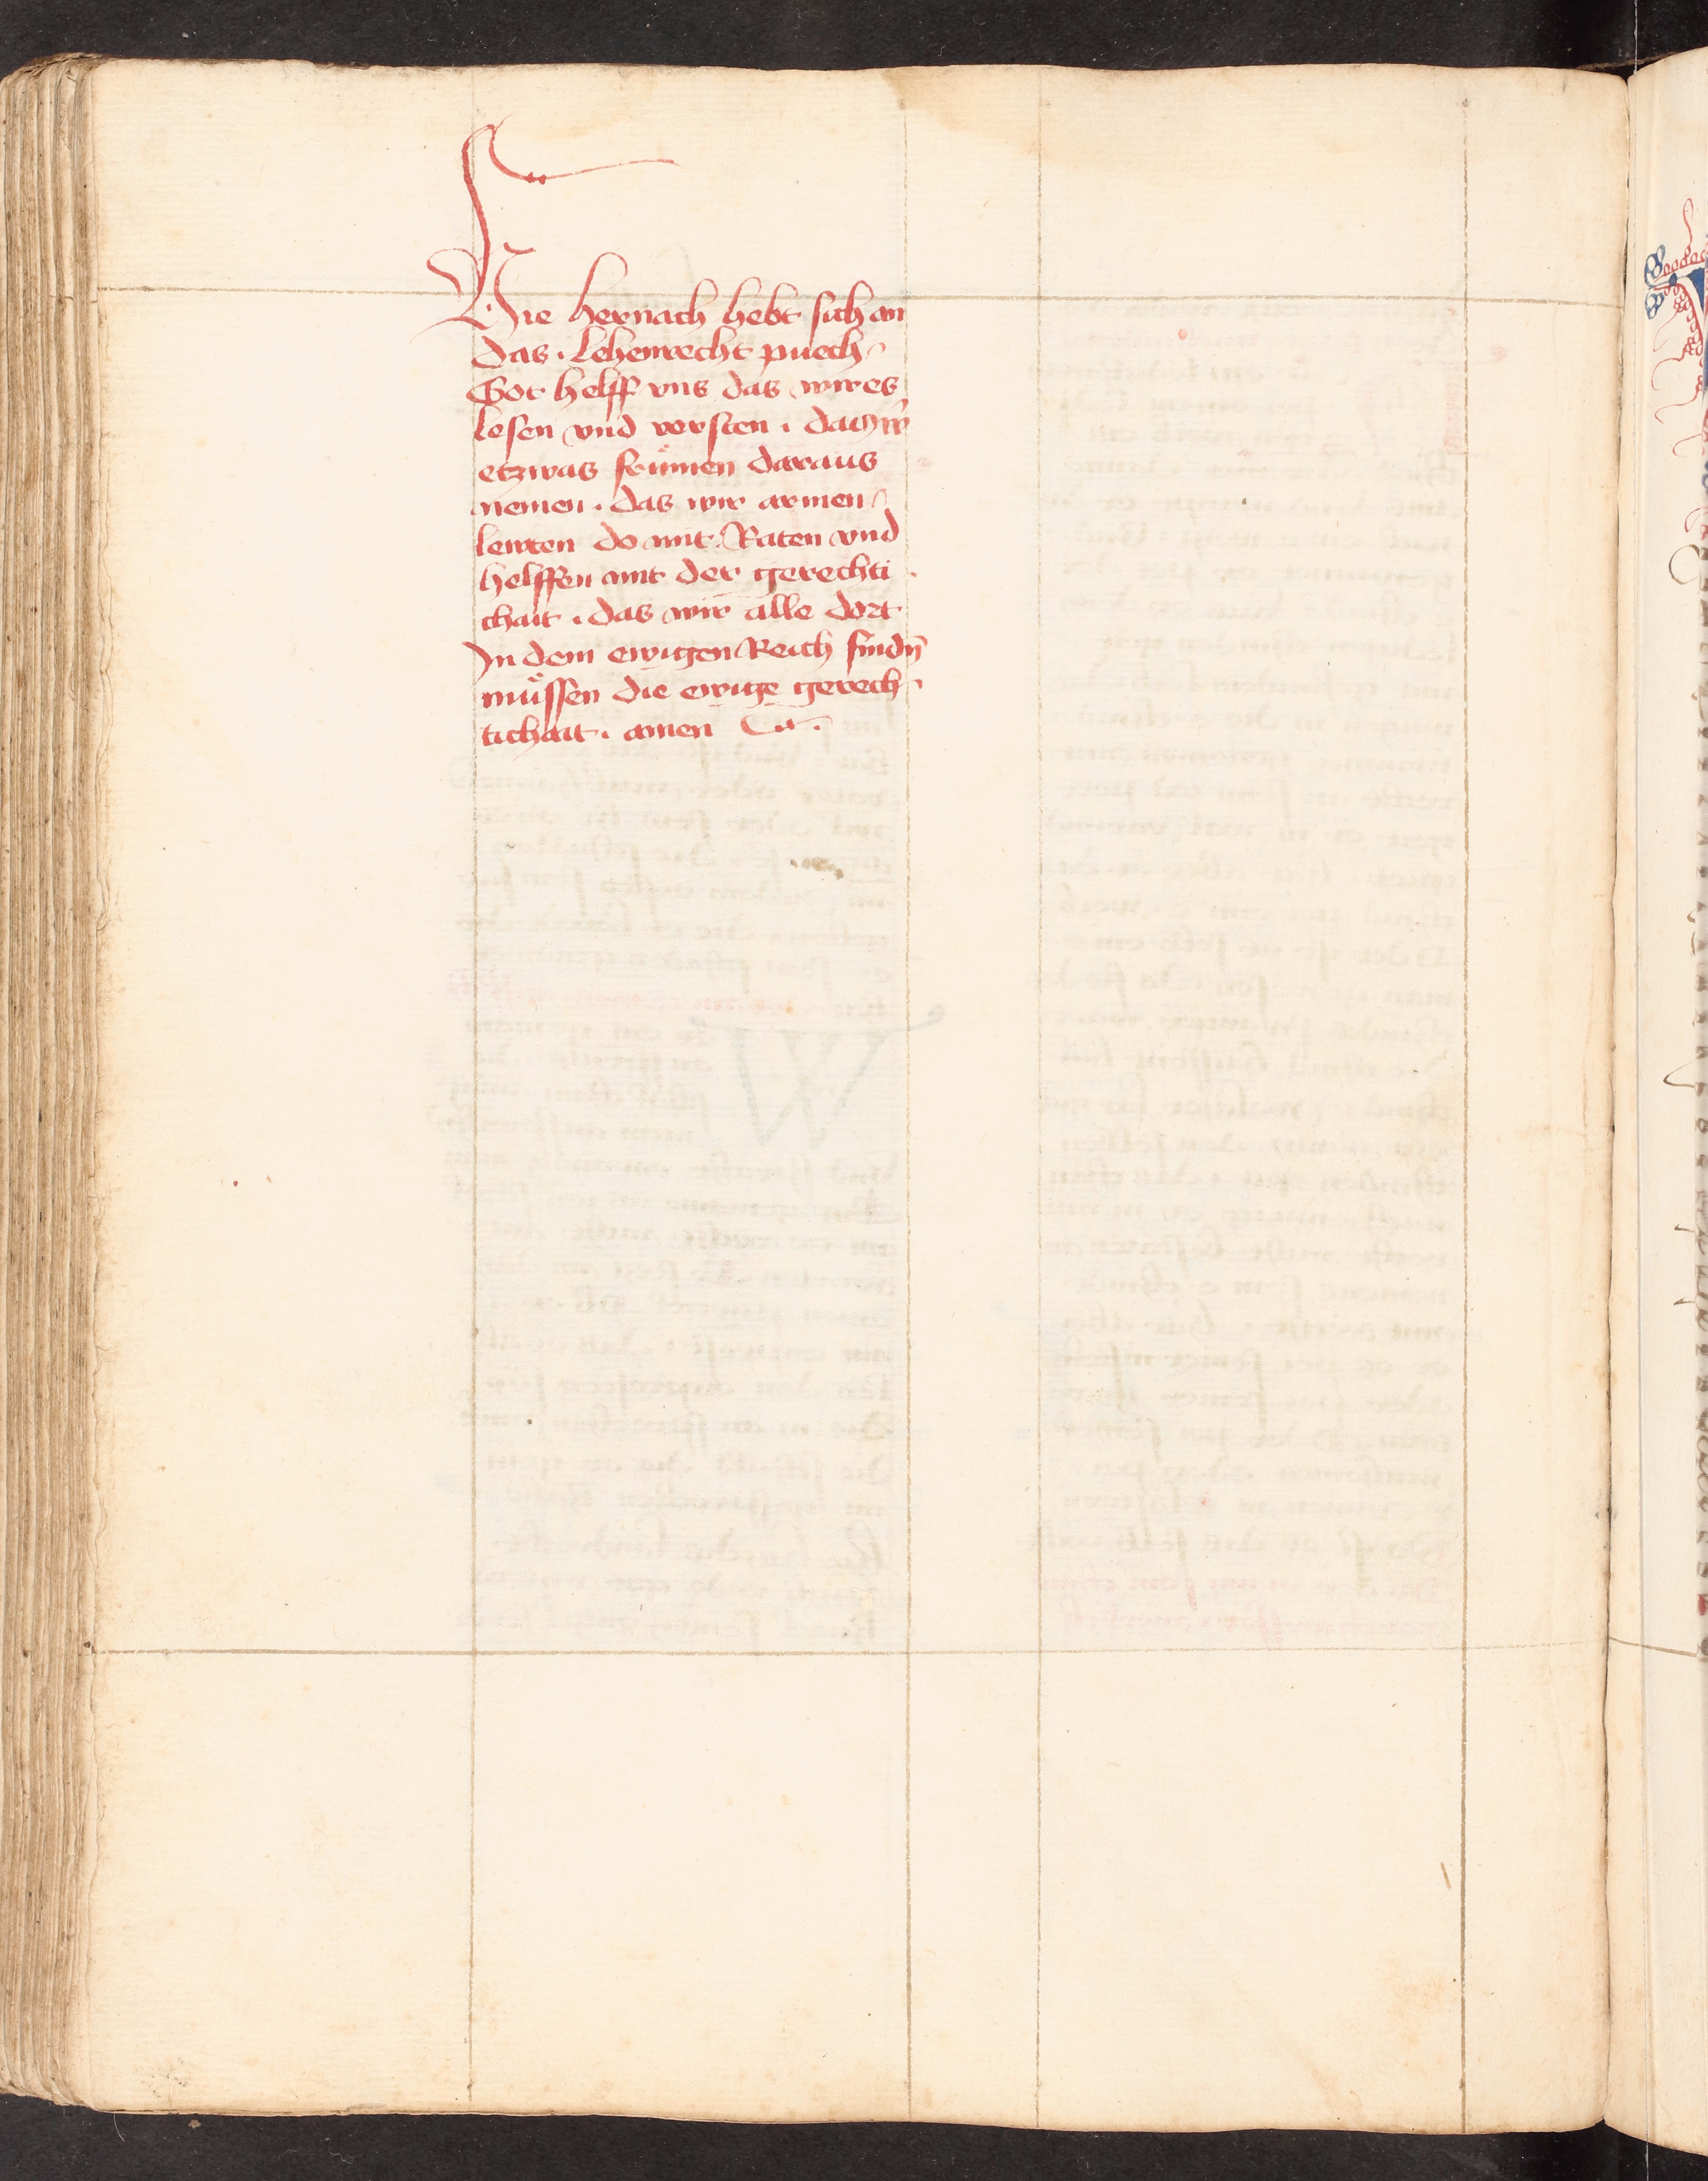 Hie hernach hebt sich an
das . lehenrecht puech
Got helff vns das wir es
lesen vnd versten . das wir
etzwas frumen daraus
nemen . das wir armen
lewten do mit Raten vnd
helffen mit der gerechti
chait . das wir alle dort
In dem ewigen Reich finden
müssen die ewige gerech
tichait . amen